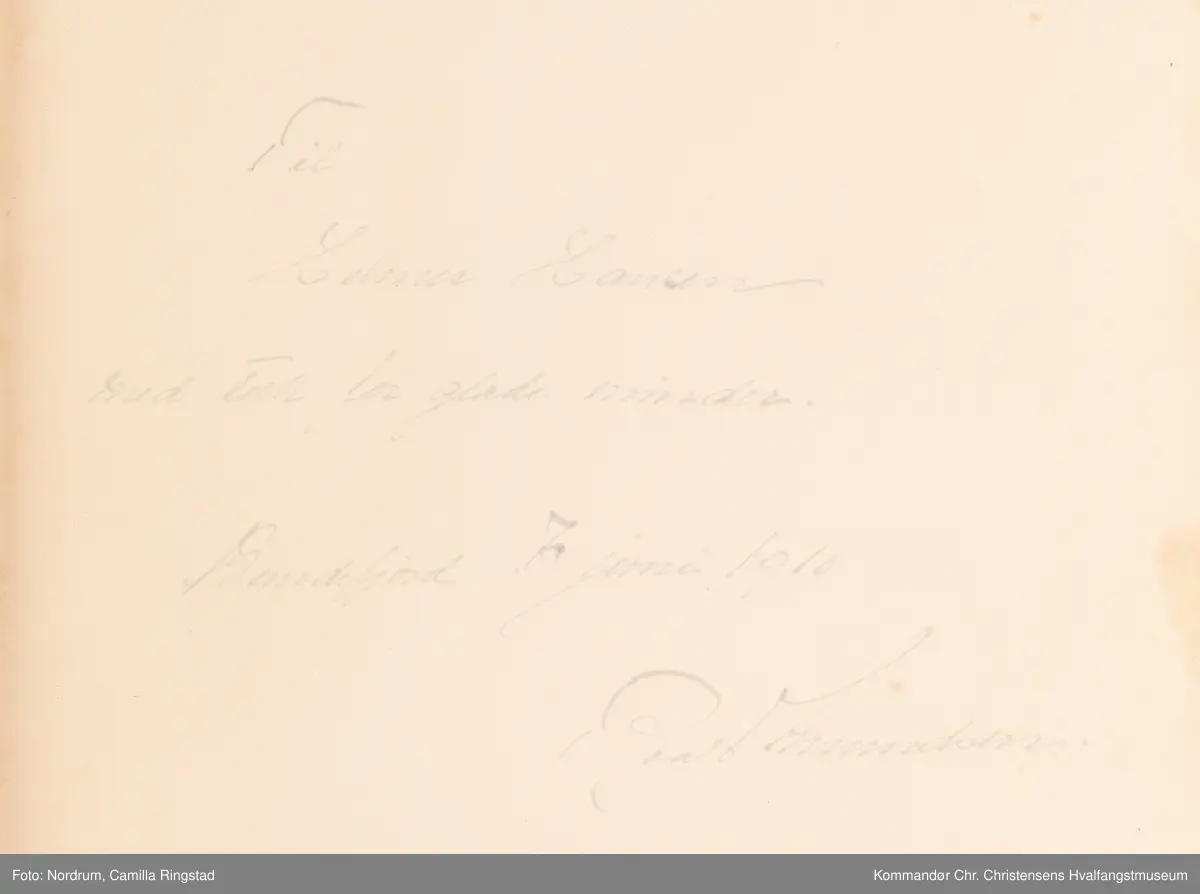 Til
Helmer Hansen
med tak for glade minder.
Bundefjord 7 juni 1910
Roald Amundsen.
Foto: Nordrum, Camilla Ringstad
Kommandør Chr. Christensens Hvalfangstmuseum